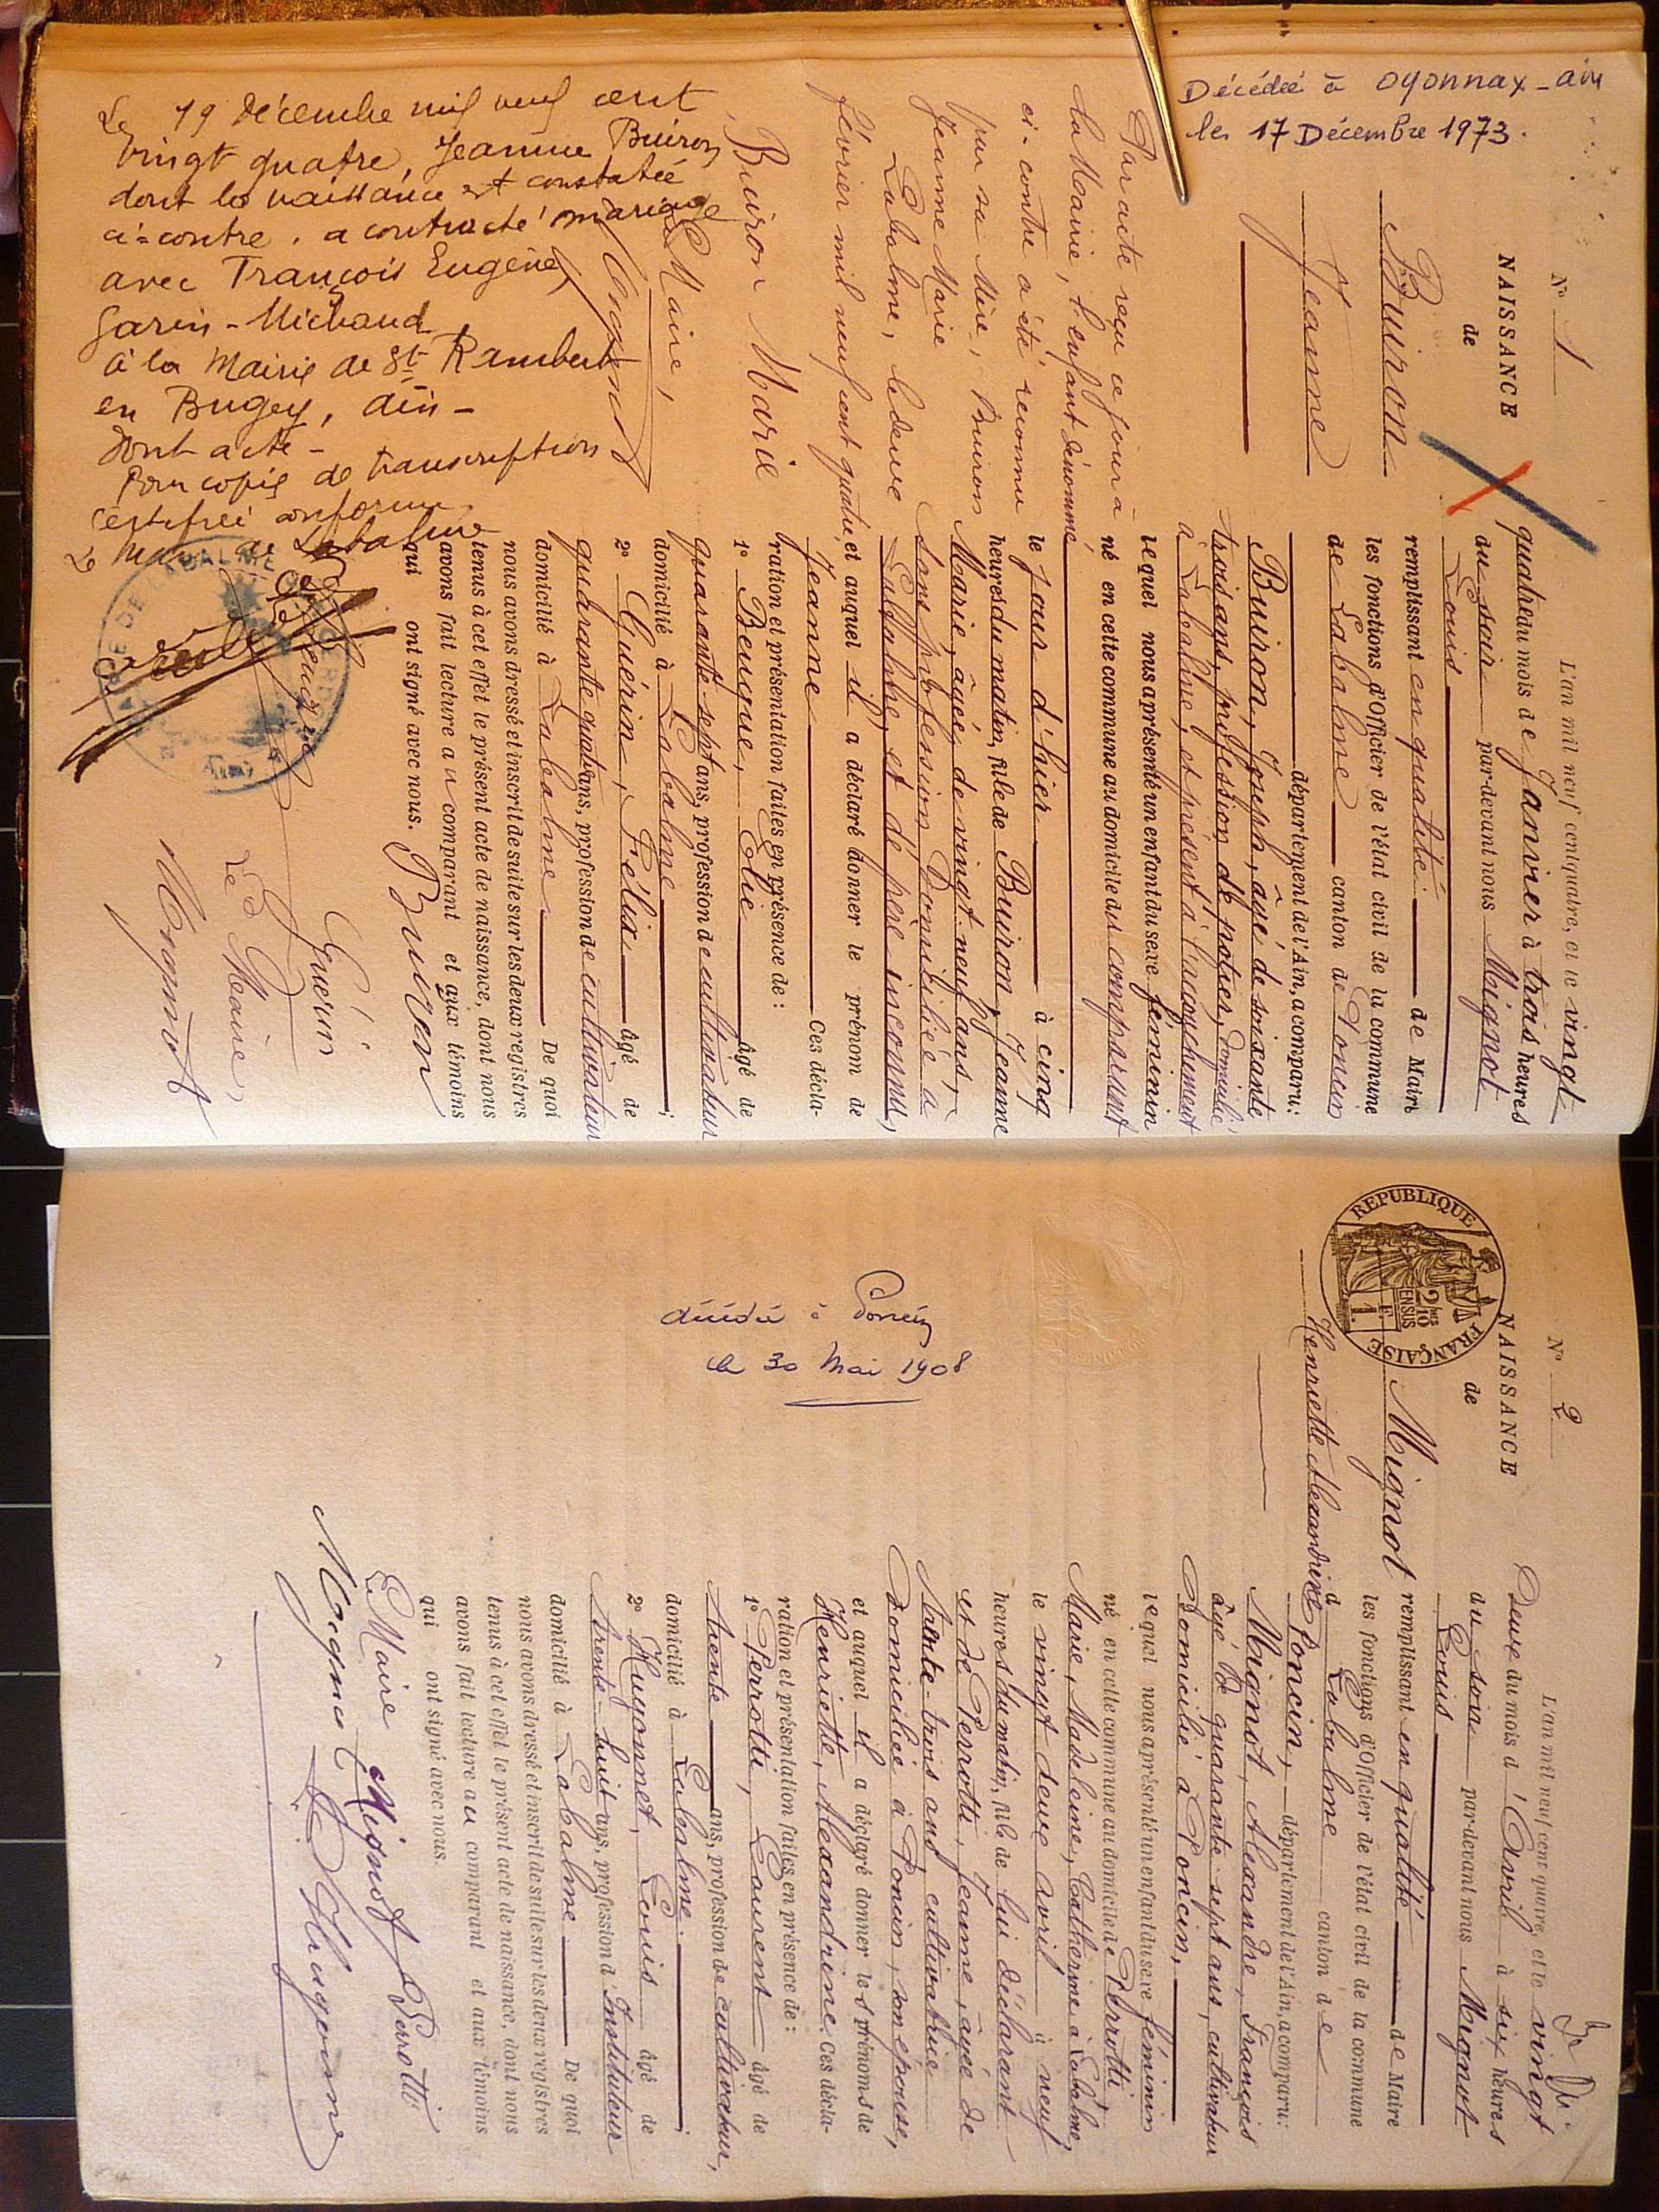 N° 1
NAISSANCE
de
Buiron
Jeanne
Décédée à Oyonnax - ain
le 17 Décembre 1973.
Par acte reçu ce jour à
la Mairie, l'enfant dénommé
ci-contre a été reconnu
par sa Mère, Buiron
Jeanne Marie
Labalme, le deux
février mil neuf cent quatre,
Buiron Marie
Le Maire,
Mignot
Le 19 Décembre mil neuf cent
vingt quatre, Jeanne Buiron
dont la naissance est constatée
ci-contre, a contracté mariage
avec François Eugène
Garin-Michaud
à la Mairie de St Rambert
en Bugey, Ain -
Dont acte -
Pour copie de transcription
certifiée conforme
Le Maire de Labalme
L'an mil neuf cent quatre, et le vingt
quatre du mois de Janvier à trois heures
du soir par-devant nous Mignot
Louis
remplissant en qualité de Maire
les fonctions d'Officier de l'état civil de la commune
de Labalme canton de Poncin
département de l'Ain, a comparu:
Buiron, Joseph, âgé de soixante
trois ans, profession de potier, domicilié
à Labalme, et présent à l'accouchement
lequel nous a présenté un enfant du sexe féminin
né en cette commune au domicile du comparant
le jour d'hier à cinq
heures du matin, fille de Buiron, Jeanne
Marie, âgée de vingt neuf ans,
sans profession, Domiciliée à
Labalme, et de père inconnu,
et auquel il a déclaré donner le prénom de
Jeanne Ces décla-
ration et présentation faites en présence de:
1° Beuque, Elie âgé de
quarante sept ans, profession de cultivateur
domicilié à Labalme;
2° Guérin, Félix âgé de
quarante quatre ans, profession de cultivateur
domicilié à Labalme De quoi
nous avons dressé et inscrit de suite sur les deux registres
tenus à cet effet le présent acte de naissance, dont nous
avons fait lecture au comparant et aux témoins
qui ont signé avec nous. Buiron
Guérin
Le Maire,
Mignot
N° 2
NAISSANCE
de
Mignot
Henriette Alexandrine
REPUBLIQUE FRANÇAISE
2/10 EN SUS
1 F.
décédée à Poncin
le 30 Mai 1908
L'an mil neuf cent quatre, et le vingt
Deux du mois d'Avril à six heures
du soir par-devant nous Mignot
Louis
remplissant en qualité de Maire
les fonctions d'Officier de l'état civil de la commune
d Labalme canton de
Poncin, département de l'Ain, a comparu:
Mignot, Alexandre, François
âgé de quarante sept ans, cultivateur
Domicilié à Poncin,
lequel nous a présenté un enfant du sexe féminin
né en cette commune au domicile de Perrotti,
Marie, Madeleine, Catherine à Labalme,
le vingt deux avril à neuf
heures du matin, fille de lui déclarant
et de Perrotti, Jeanne, âgée de
trente-trois ans, cultivatrice
domiciliée à Poncin, son épouse,
et auquel il a déclaré donner les prénoms de
Henriette, Alexandrine. Ces décla-
ration et présentation faites en présence de:
1° Perrotti, Laurent âgé de
trente ans, profession de cultivateur,
domicilié à Labalme;
2° Hugonnet, Louis âgé de
trente-huit ans, profession d'Instituteur
domicilié à Labalme De quoi
nous avons dressé et inscrit de suite sur les deux registres
tenus à cet effet le présent acte de naissance, dont nous
avons fait lecture au comparant et aux témoins
qui ont signé avec nous.
Le Maire Mignot Perrotti
Mignot L. Hugonnet